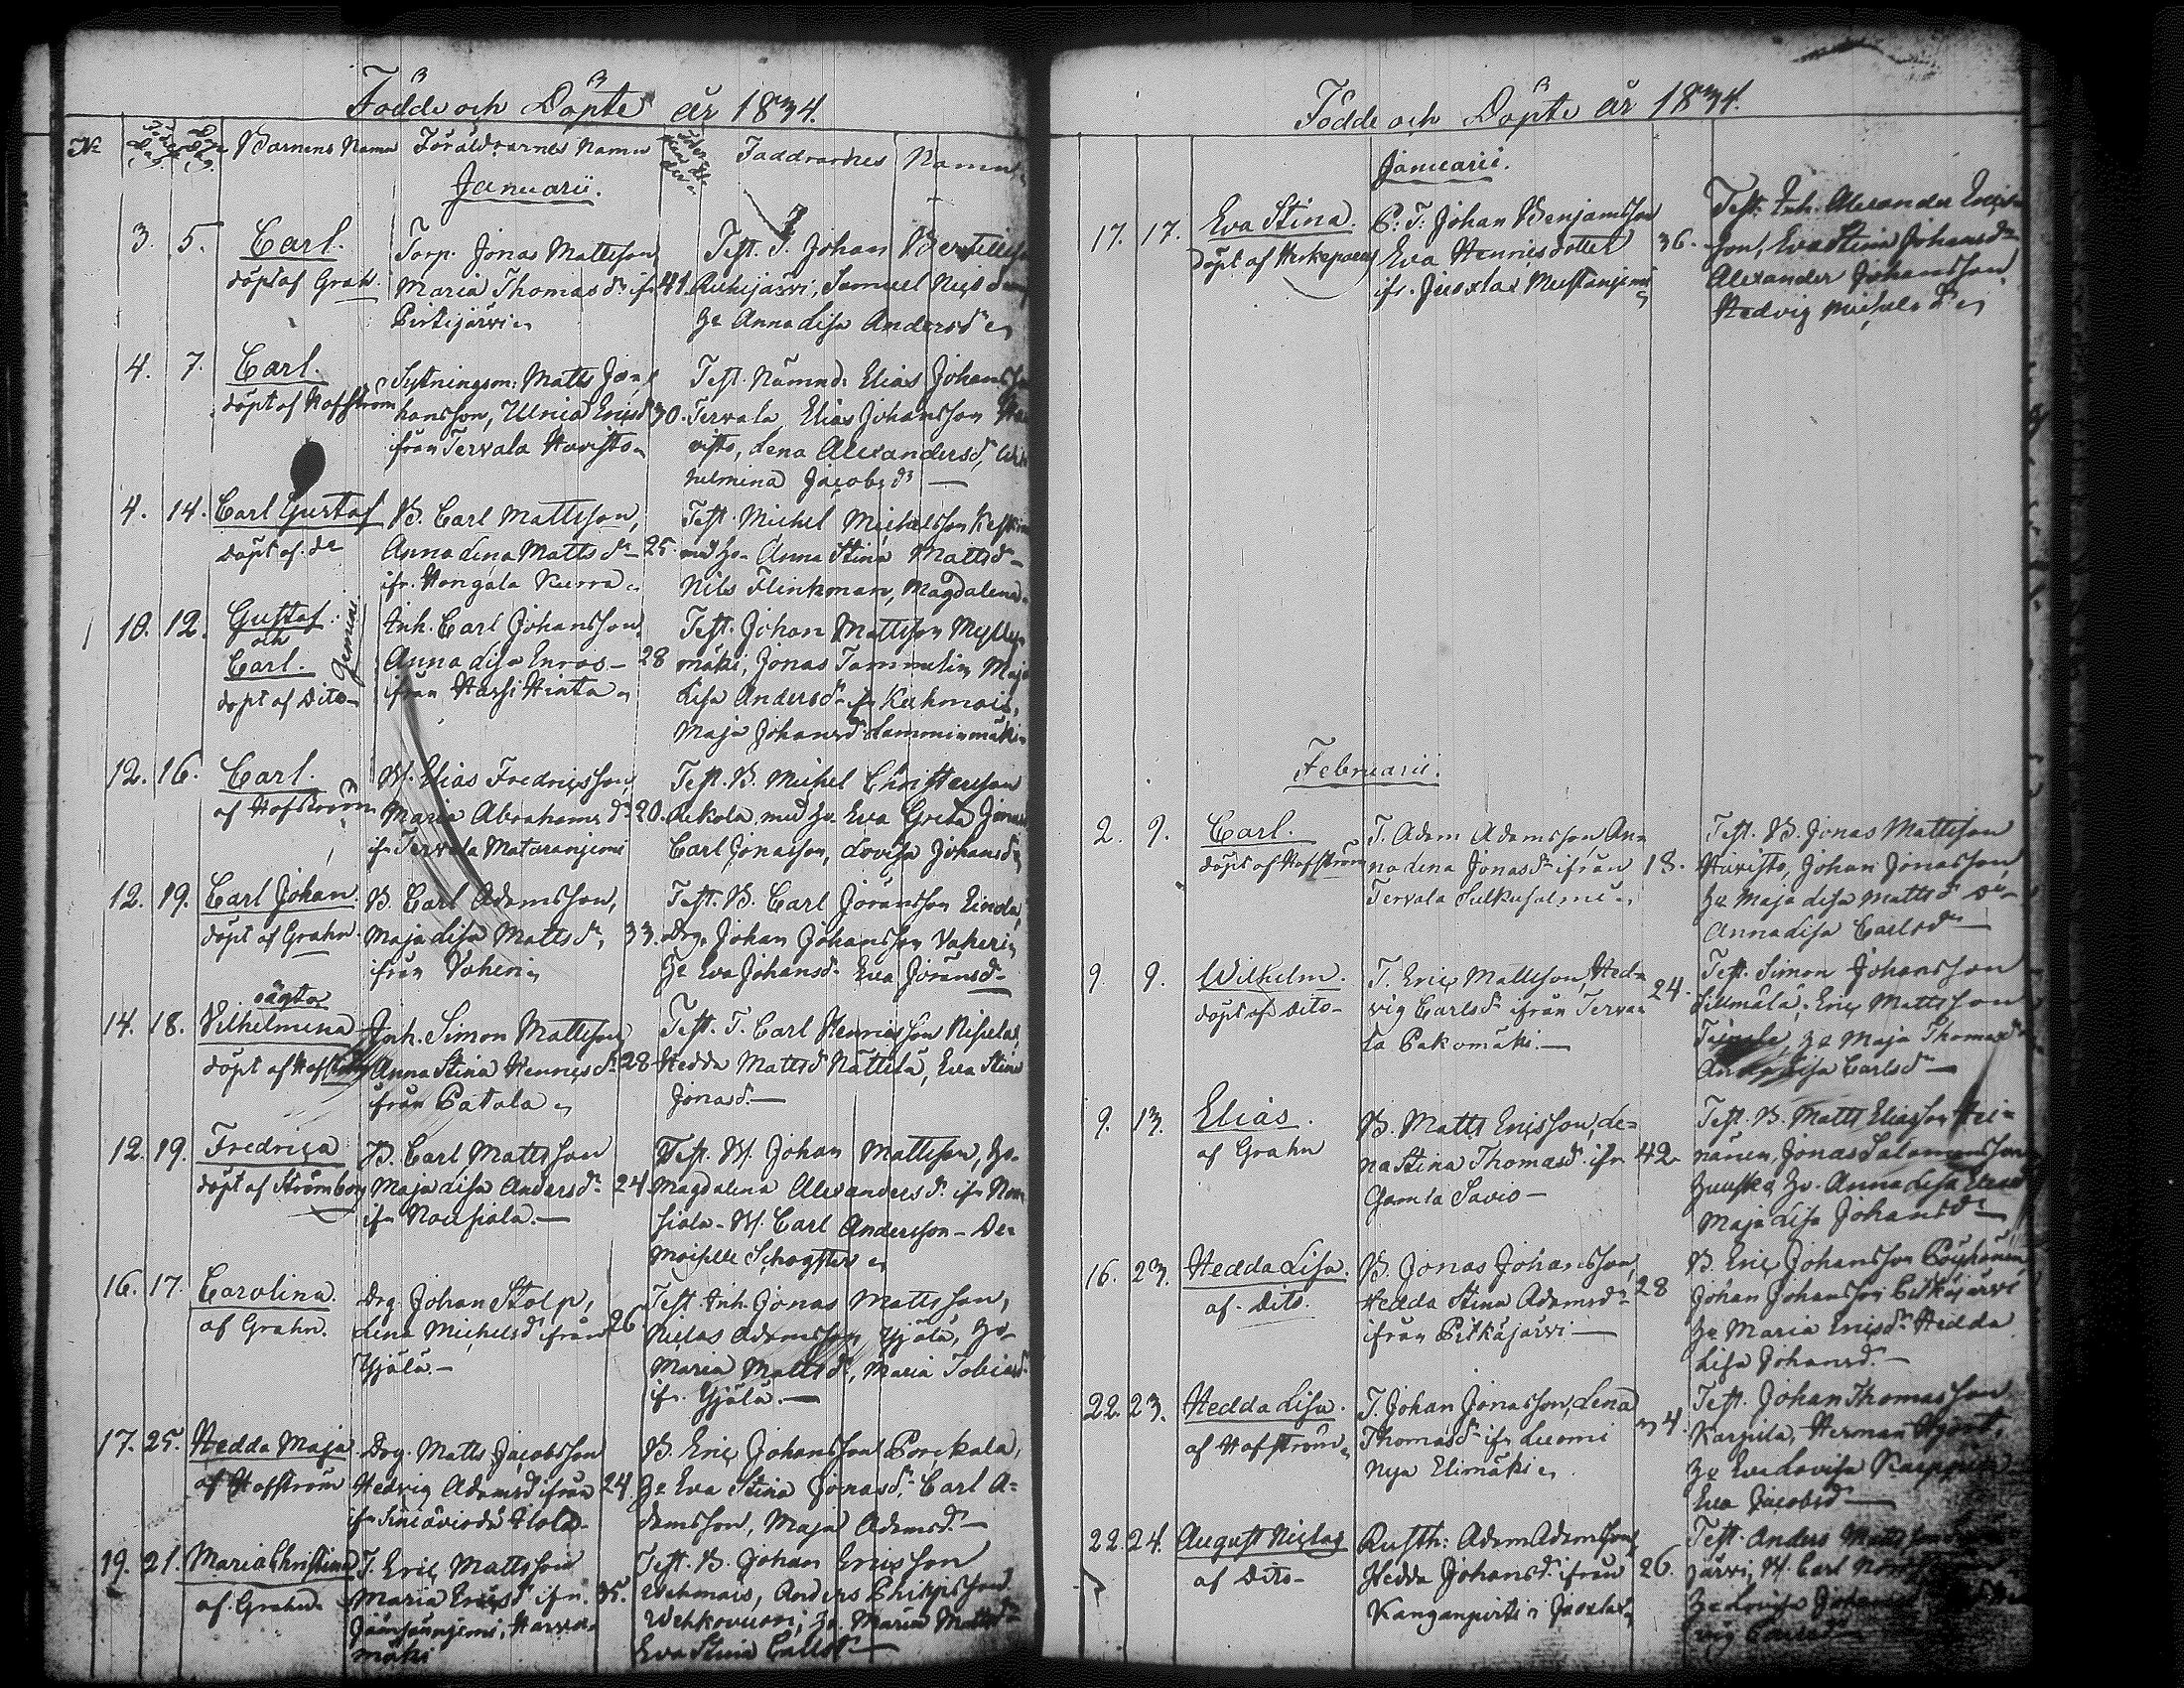 Födde och Döpte år 1834.
No Födelse Dag. Döpelse Dag. Barnens Namn Föräldrarnes Namn Moderns ålder Faddrarnes Namn
Januarii.
3. 5. Carl.
döpt af Grahn.
Torp. Jonas Mattsson
Maria Thomasdr ifr 41.
Pirtijärvi
Test. T. Johan Bertilsson
Ruhijärvi, Samuel
Ho Anna Lisa Andersdr
4. 7. Carl.
döpt af Hofström
Sytningsm: Matts Jo-
hansson, Ulrica Ericsd 30.
från Tervala Havisto
Test. Nämnd: Elias Johansson
Tervala Elias Johansson Ha
visto, Lena Alexandersd, Wil
helmina Jacobsdr
4. 14. Carl Gustaf
döpt af do
B. Carl Mattsson,
Anna Lena Mattsdr 25.
ifr. Hongala Kurra
Test. Michel Michelsson
med ho Anna Stina Mattsdr
Nils Flinkman, Magdalena
10. 12. Gustaf
och
Carl. Gemini
döpt af Dito
Inh. Carl Johansson
Anna Lisa Enros 28
ifrån Harju Hinta
Test. Johan Mattsson Mylly-
mäki, Jonas Tammelin Maja
Lisa Andersdr ifr Kukmois,
Maja Johansdr Lamminmäki
12. 16. Carl.
af Hofström
B. Elias Fredricsson,
Maria Abrahamsdr 20.
ifr Tervala Mataraniemi
Test. B. Michel Christersson
Rekola med ho Eva Greta Jonasd
Carl Jonasson, Lovisa Johansd
12. 19. Carl Johan.
döpt af Grahn
B. Carl Adamsson,
Maja Lisa Mattsdr, 33.
ifrån Vaheri
Test. B. Carl Göransson Einola,
Drg. Johan Johansson Vaheri
Ho Eva Johansd Eva Göransd
14. 18. oägta
Vilhelmina
döpt af Hofström
Inh. Simon Mattsson
Anna Stina Henricsdr 28
ifrån Patala
Test. T. Carl Henricsson
Hedda Mattsd Nättilä, Eva Stina
Jonasd.
12. 19. Fredrica
döpt af Strömborg
B. Carl Mattsson
Maja Lisa Andersdr 24
ifr Nousiala.
Test. B. Johan Mattsson, ho
Magdalena Alexandersdr ifr Nou
siala. B. Carl Andersson De-
moiselle
16. 17. Carolina.
af Grahn.
Drg. Johan Stolp,
Lena Michelsd ifrån 26.
Yijälä.
Test. Inh. Jonas Mattsson,
Niclas Adamsson Yijälä, ho
Maria Mattsdr, Maria Tobiasd
ifr. Yijälä.
17. 25. Hedda Maja
af Hofström
Drg. Matts Jacobsson
Hedvig Adamsd ifrån 24.
ifr
B. Eric Johansson Porckala,
Ho Eva Stina Jonasdr. Carl A-
damsson, Maja Adamsd.
19. 21. Maria Christina
af Grahn.
T. Eric Mattsson
Maria Ericsd ifr. 35.
Harva-
mäki
Test. B. Johan Ericsson
Anders Philipsson
Wehkovuori, ho Maria Mattsdr
Eva Stina
Födde och Döpte år 1834.
Januarii.
17. 17. Eva Stina.
döpt af Herkepaeus
C: T: Johan Benjamsson
Eva Henricsdotter 36.
ifr. Juoxlax Mustaniemi
Test: Inh. Alexander Erics-
son, Eva Stina Johansdr
Alexander Johansson
Hedvig Michelsdr
Februarii.
2. 9. Carl.
döpt af Hofström
T. Adam Adamsson, An-
na Lena Jonasdr ifrån 18.
Tervala Sulkusalmi
Test. B. Jonas Mattsson
Havisto, Johan Jonasson,
Ho Maja Lisa Mattsd do
Anna Lisa Carlsdr
9. 9. Wilhelm.
döpt af Dito
T. Eric Mattsson, Hed-
vig Carlsdr ifrån Terva- 24.
la Pakomäki.
Test. Simon Johansson
Eric Mattsson
Ho Maja Thomasdr
Anna Lisa Carlsdr
9. 13. Elias.
af Grahn
B. Matts Ericsson, Le-
na Stina Thomasd ifr 42.
Gamla Savio
Test. B. Matts Eliasson Hei-
nänen, Jonas Salomonsson
ho Anna Lisa
Maja Lisa Johansdr
16. 23. Hedda Lisa.
af Dito.
B. Jonas Johansson,
Hedda Stina Adamsdr 28
ifrån Pitkäjärvi
B. Eric Johansson
Johan Johansson Pitkäjärvi
Ho Maria Ericsdr Hedda
Lisa Johansd.
22. 23. Hedda Lisa.
af Hofström
T. Johan Jonasson, Lena
Thomasdr ifr Luomi 34.
Nya Elimäki
Test. Johan Thomasson
Karjula, Herman Hjort,
Ho Eva Lovisa
Eva Jacobsd
22. 24. August Niclas
af Dito
Rusth: Adam Adamsson,
Hedda Johansd ifrån 26.
Kanganpirtti Juoxlax
Test. Anders Mattsson
järvi, B. Carl
Ho Lovisa Johansd
vig Carlsd